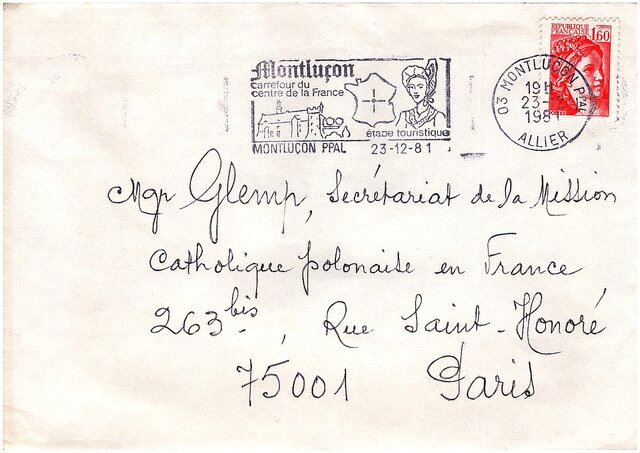 RÉPUBLIQUE
FRANÇAISE 1,60
Montluçon
carrefour du
centre de la France
étape touristique
MONTLUÇON PPAL 23-12-81
03 MONTLUÇON PPAL
19H
23-
1981
ALLIER
Mgr Glemp, Secrétariat de la Mission
Catholique polonaise en France
263 bis, Rue Saint-Honoré
75001 Paris